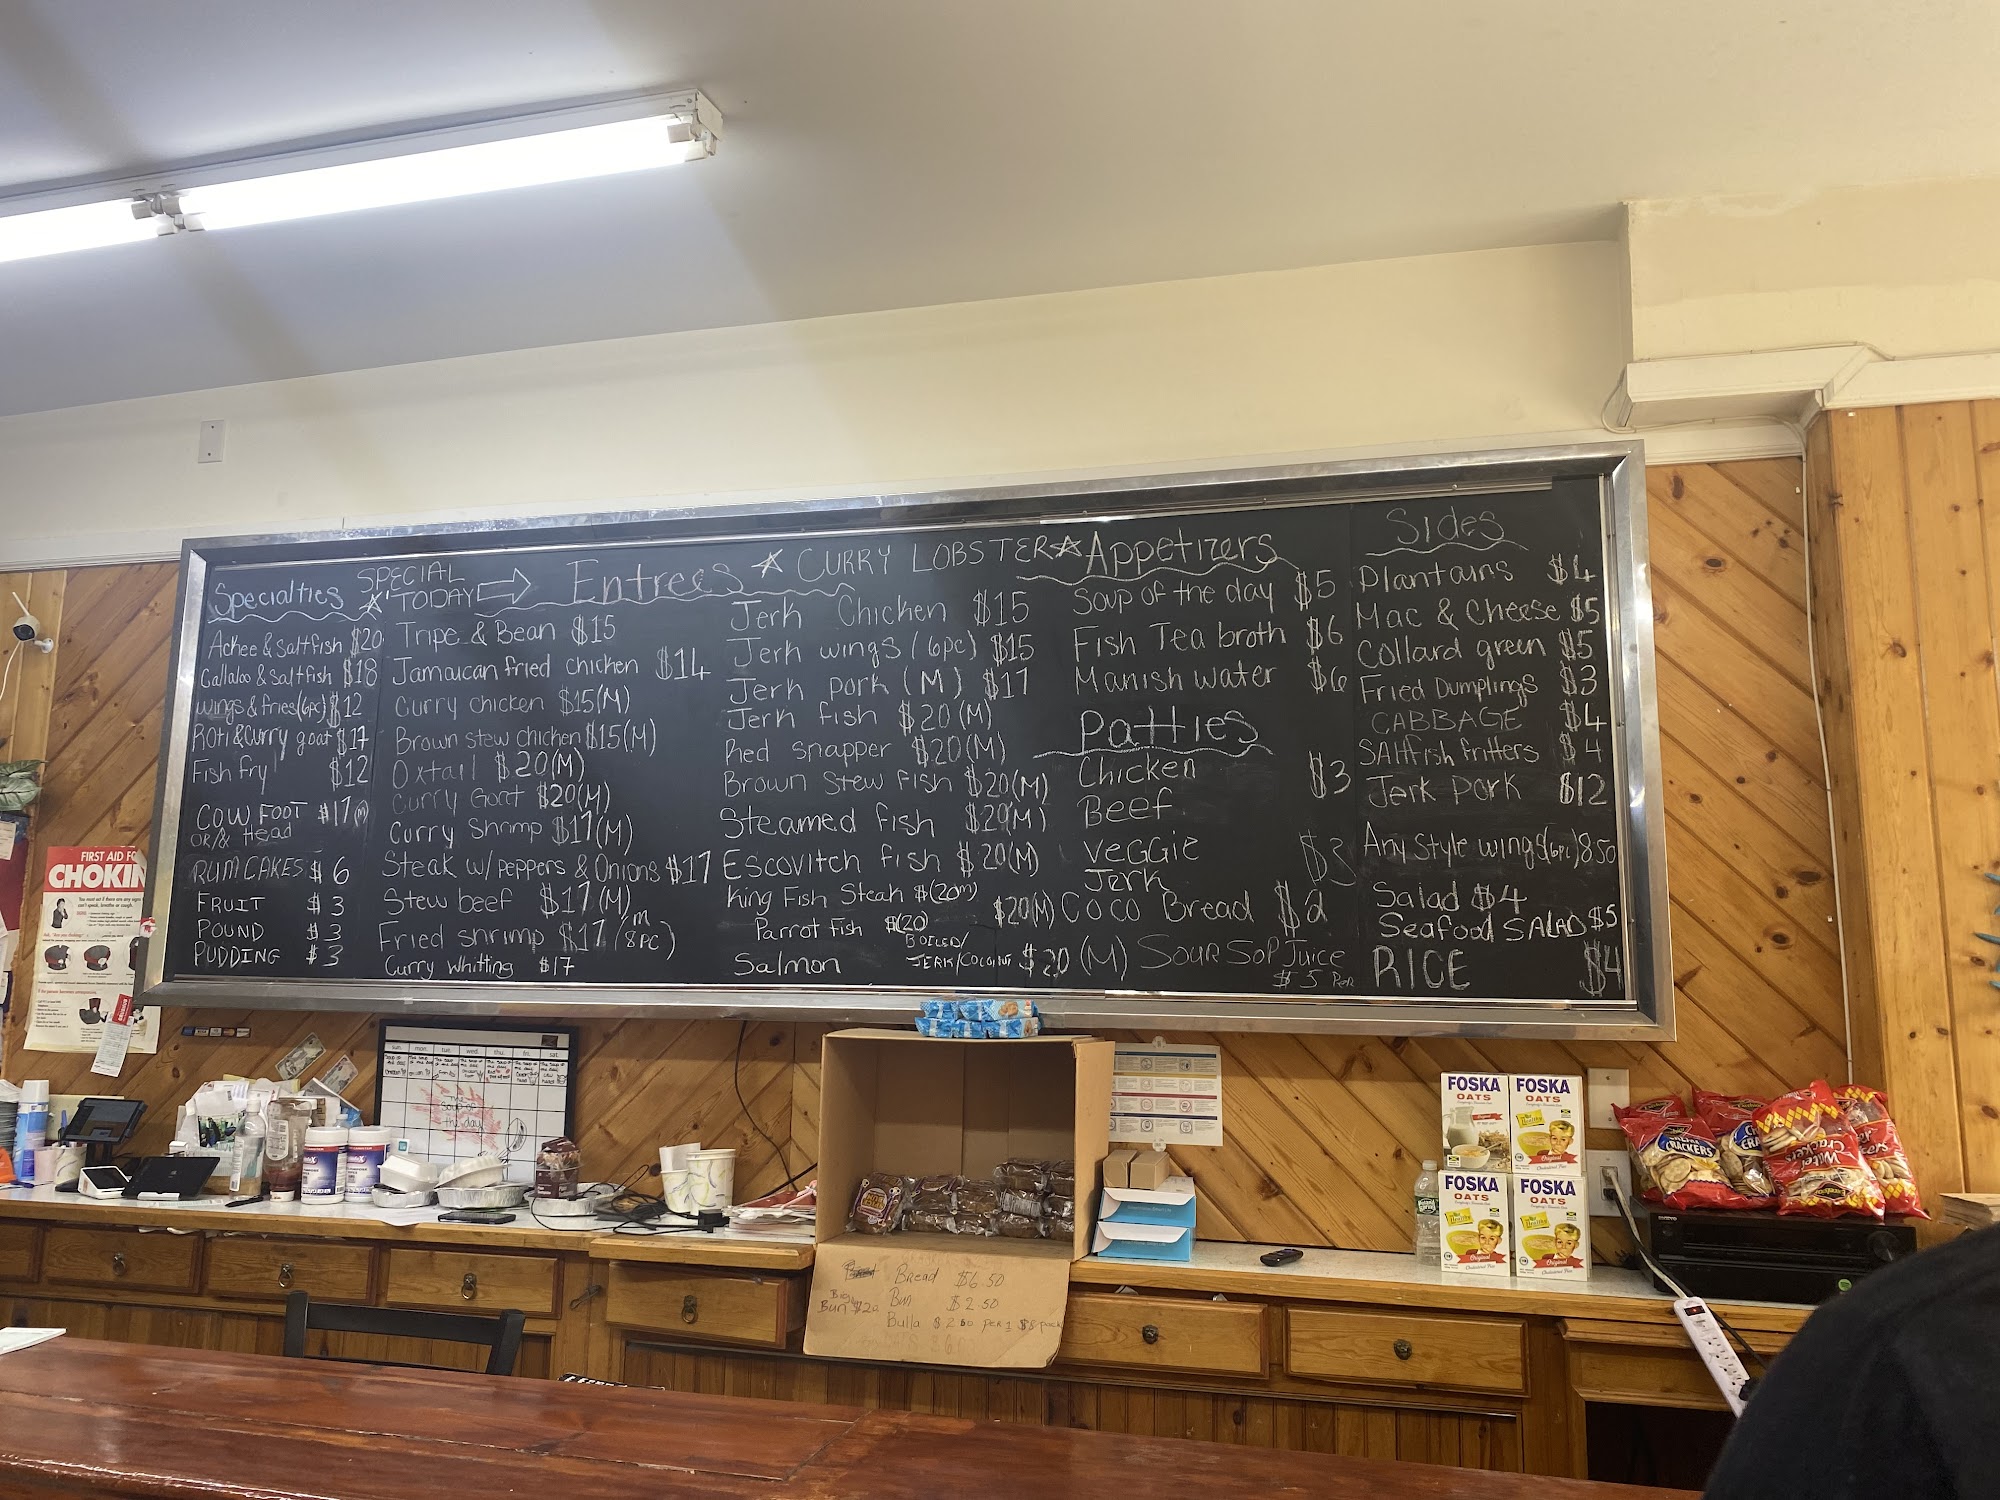 Specialties
Ackee & Saltfish $20
Callaloo & Saltfish $18
Wings & fries (6pc) $12
Roti & Curry goat $17
Fish fry $12
COW FOOT $17 (M)
OR/& Head
RUM CAKES $6
FRUIT $3
POUND $3
PUDDING $3
SPECIAL
TODAY
Entrees
CURRY LOBSTER
Tripe & Bean $15
Jamaican fried chicken $14
Curry chicken $15(M)
Brown stew chicken $15(M)
Oxtail $20(M)
Curry Goat $20(M)
Curry Shrimp $17(M)
Steak w/ peppers & Onions $17
Stew beef $17(M)
Fried shrimp $17 (8pc) m
Curry Whitting $17
Jerk Chicken $15
Jerk wings (6pc) $15
Jerk pork (M) $17
Jerk fish $20(M)
Red snapper $20(M)
Brown Stew fish $20(M)
Steamed fish $20(M)
Escovitch fish $20(M)
King Fish Steak $(20m)
Parrot Fish $(20) $20(M)
Salmon BOILED/ JERK/COCONUT $20(M)
Appetizers
Soup of the day $5
Fish Tea broth $6
Manish water $6
Patties
Chicken $3
Beef
Veggie $3
Jerk
Coco Bread $2
Sour Sop Juice
$5 Per
Sides
Plantains $4
Mac & Cheese $5
Collard green $5
Fried Dumplings $3
CABBAGE $4
Saltfish fritters $4
Jerk pork $12
Any Style wings (6pc) 850
Salad $4
Seafood SALAD $5
RICE $4
FIRST AID FO
CHOKIN
sun. mon. tue. wed. thu. fri. sat.
The
Soup of
the day
Bread $6.50
Big Bun $2.50
Bun
Bulla $2 per 1 $8 pack
FOSKA
OATS
Original
FOSKA
OATS
Original
FOSKA
OATS
Original
FOSKA
OATS
Original
CRACKERS
Water
Crackers